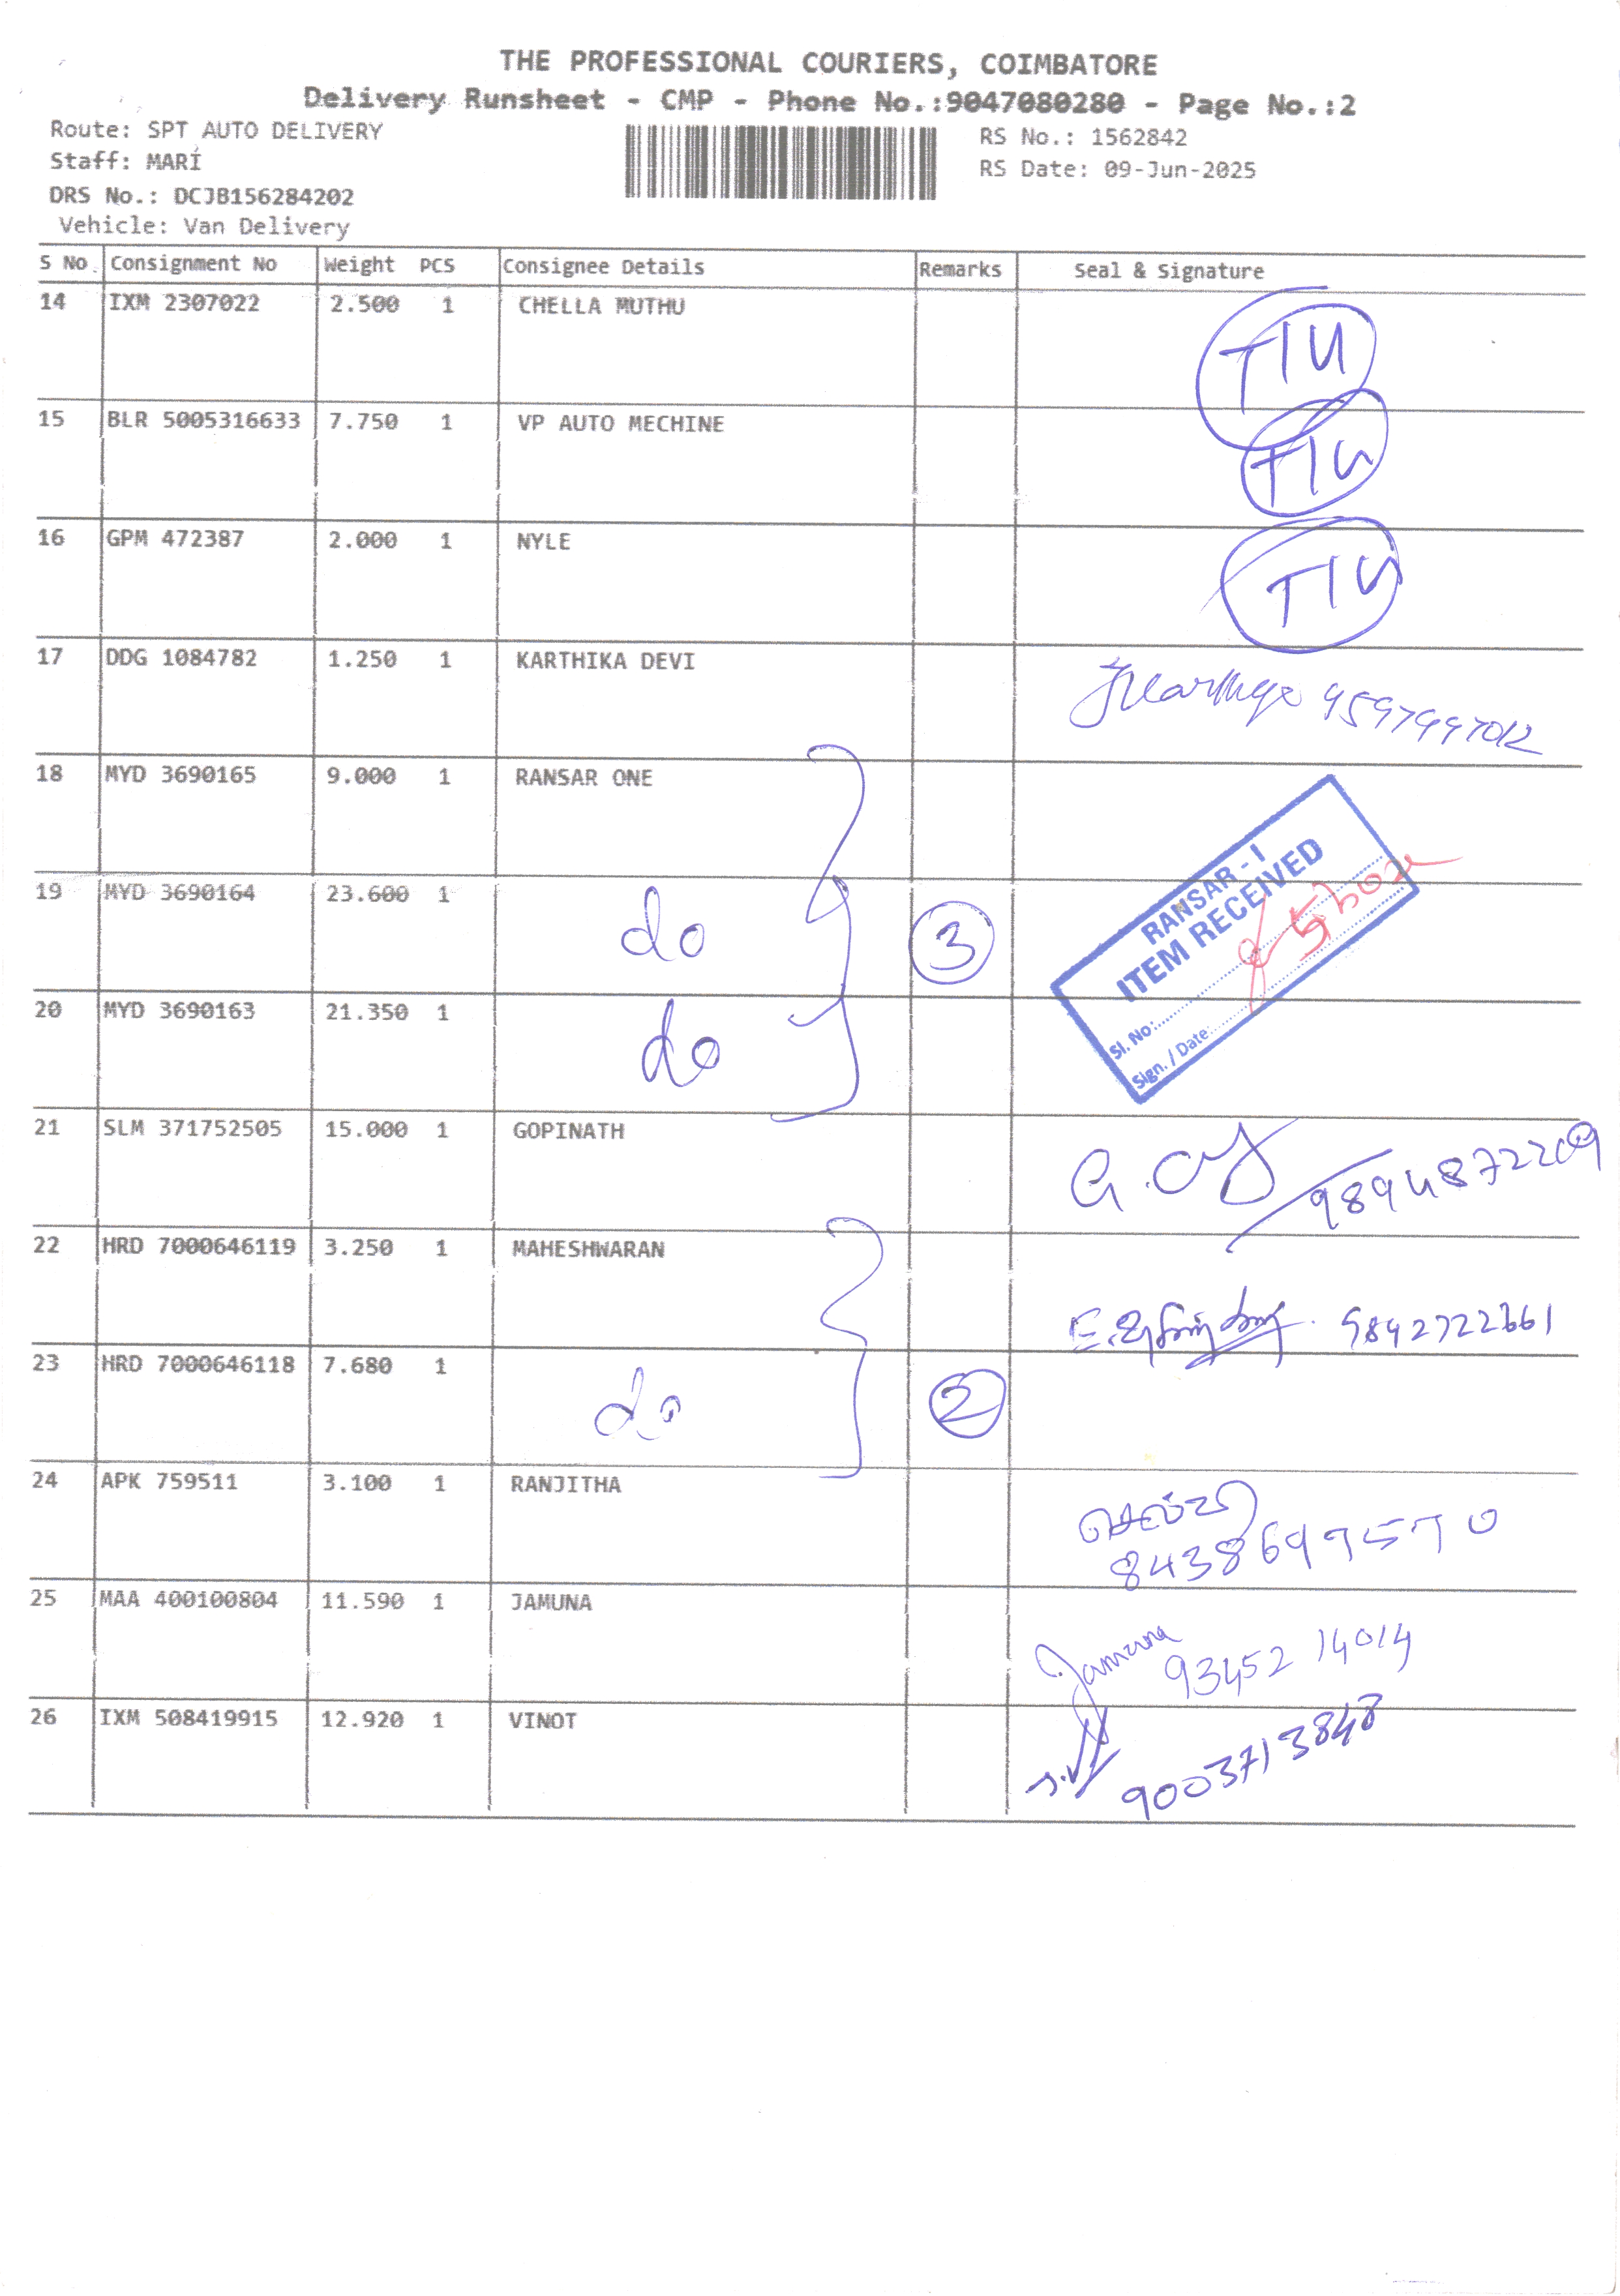 THE PROFESSIONAL COURIERS, COIMBATORE
Delivery Runsheet - CMP - Phone No.:9047080280 - Page No.:2
Route: SPT AUTO DELIVERY
Staff: MARI
DRS No.: DCJB156284202
Vehicle: Van Delivery
RS No.: 1562842
RS Date: 09-Jun-2025
S No. Consignment No Weight PCS Consignee Details Remarks Seal & Signature
14 IXM 2307022 2.500 1 CHELLA MUTHU
15 BLR 5005316633 7.750 1 VP AUTO MECHINE
16 GPM 472387 2.000 1 NYLE
17 DDG 1084782 1.250 1 KARTHIKA DEVI
18 MYD 3690165 9.000 1 RANSAR ONE
19 MYD 3690164 23.600 1 do 3
RANSAR - I
ITEM RECEIVED
Sl. No:
Sign. / Date:
20 MYD 3690163 21.350 1 do
21 SLM 371752505 15.000 1 GOPINATH 9894872209
22 HRD 7000646119 3.250 1 MAHESHWARAN
23 HRD 7000646118 7.680 1 do 2
24 APK 759511 3.100 1 RANJITHA
25 MAA 400100804 11.590 1 JAMUNA Jamuna
93452 14014
26 IXM 508419915 12.920 1 VINOT
9003713848